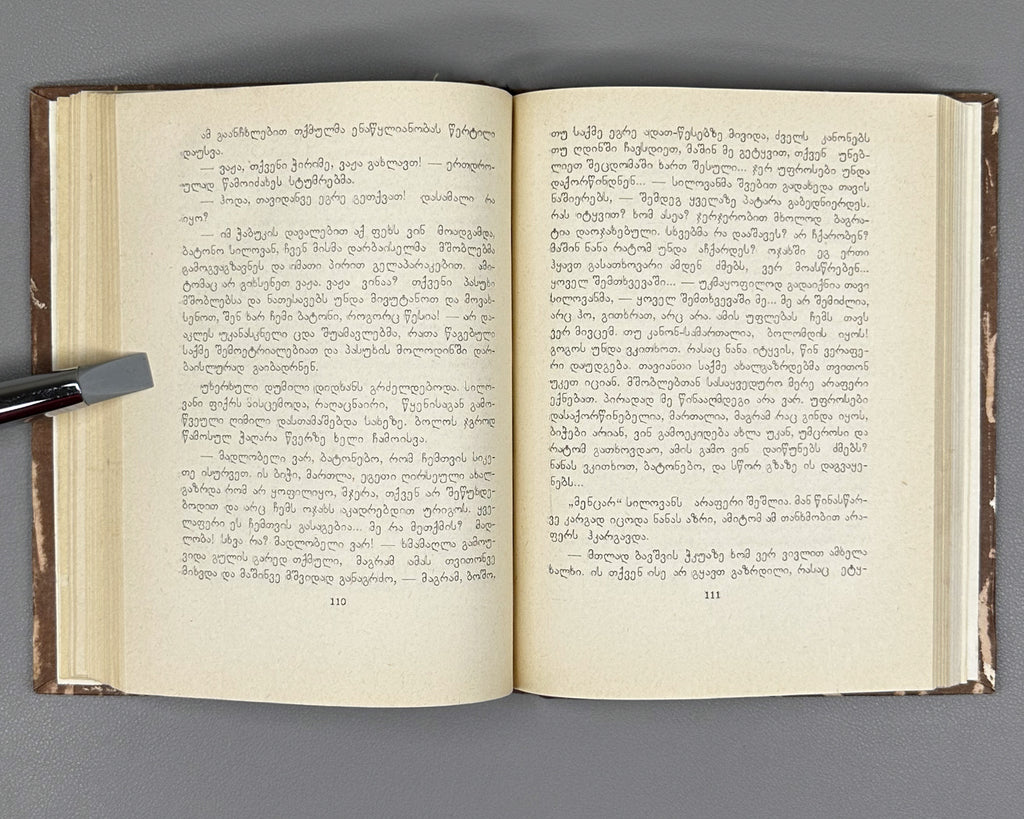 ამ გაანჩხლებით თქმულმა ენაწყლიანობას წერტილი
დაუსვა.
— ვაჟა, თქვენი ჭირიმე, ვაჟა გახლავთ! — ერთდრო-
ულად წამოიძახეს სტუმრებმა.
— ჰოდა, თავიდანვე ეგრე გეთქვათ! დასამალი რა
იყო?
— იმ ჭაბუკის დავალებით აქ ფეხს ვინ მოადგამდა,
ბატონო სილოვან, ჩვენ მისმა დარბაისელმა მშობლებმა
გამოგვაგზავნეს და იმათი პირით გელაპარაკებით. ამი-
ტომაც არ გიხსენეთ ვაჟა. ვაჟა ვინაა? თქვენი პასუხი
მშობლებსა და ნათესავებს უნდა მივუტანოთ და მოვახ-
სენოთ, შენ ხარ ჩემი ბატონი, როგორც წესია! — არ და-
აკლეს უკანასკნელი ცდა შუამავლებმა, რათა წაგებული
საქმე შემოეტრიალებიათ და პასუხის მოლოდინში დარ-
ბაისლურად გაიბადრნენ.
უხერხული დუმილი დიდხანს გრძელდებოდა. სილო-
ვანი ფიქრს მისცემოდა, რაღაცნაირი, წყენისაგან გამო-
წვეული ღიმილი დასთამაშებდა სახეზე. ბოლოს ჯგროდ
წამოსულ ჭაღარა წვერზე ხელი ჩამოისვა.
— მადლობელი ვარ, ბატონებო, რომ ჩემთვის სიკე-
თე ისურვეთ. ის ბიჭი, მართლა, ეგეთი ღირსეული ახალ-
გაზრდა რომ არ ყოფილიყო, მჯერა, თქვენ არ შეწუხდე-
ბოდით და არც ჩემს ოჯახს აკადრებდით ურიგოს. ყვე-
ლაფერი ეს ჩემთვის გასაგებია... მე რა მეთქმის? მად-
ლობა! სხვა რა? მადლობელი ვარ! — ხმამაღლა გამოუ-
ვიდა გულის გარედ თქმული, მაგრამ ამას თვითონვე
მიხვდა და მაშინვე მშვიდად განაგრძო, — მაგრამ, ბოშო,
110
თუ საქმე ეგრე ადათ-წესებზე მივიდა, ძველს კანონებს
თუ ღდინში ჩავსდიეთ, მაშინ მე გეტყვით, თქვენ უნებ-
ლიეთ შეცდომაში ხართ შესული... ჯერ უფროსები უნდა
დაქორწინდნენ... — სილოვანმა შვებით გადახედა თავის
ნაშიერებს, — შემდეგ ყველაზე პატარა გაბედნიერდეს.
რას იტყვით? ხომ ასეა? ჯერჯერობით მხოლოდ ბაგრა-
ტია დაოჯახებული. სხვებმა რა დააშავეს? არ ჩქარობენ?
მაშინ ნანა რატომ უნდა აჩქარდეს? ოჯახში ეგ ერთი
ჰყავთ გასათხოვარი ამდენ ძმებს, ვერ მოასწრებენ...
ყოველ შემთხვევაში... — უკმაყოფილოდ გადაიქნია თავი
სილოვანმა, — ყოველ შემთხვევაში მე... მე არ შემიძლია,
არც ჰო, გითხრათ, არც არა. ამის უფლებას ჩემს თავს
ვერ მივცემ. თუ კანონ-სამართალია, ბოლომდის იყოს!
გოგოს უნდა ვკითხოთ. რასაც ნანა იტყვის, წინ ვერაფე-
რი დაუდგება. თავიანთი საქმე ახალგაზრდებმა თვითონ
უკეთ იციან. მშობლებთან სასაყვედურო მერე არაფერი
ექნებათ. პირადად მე წინააღმდეგი არ ვარ. უფროსები
დასაქორწინებელია, მართალია, მაგრამ რაც გინდა იყოს,
ბიჭები არიან, ვინ გამოეკიდება ახლა უკან, უმცროსი და
რატომ გათხოვდაო, ამის გამო ვინ დაიწუნებს ძმებს?
ნანას ვკითხოთ, ბატონებო, და სწორ გზაზე ის დაგვაყე-
ნებს...
„მენცარ“ სილოვანს არაფერი შეშლია. მან წინასწარ-
ვე კარგად იცოდა ნანას აზრი, ამიტომ ამ თანხმობით არა-
ფერს ჰკარგავდა.
— მთლად ბავშვის ჭკუაზე ხომ ვერ ვივლით ამხელა
ხალხი. ის თქვენ ისე არ გყავთ გაზრდილი, რასაც ეტყ-
111